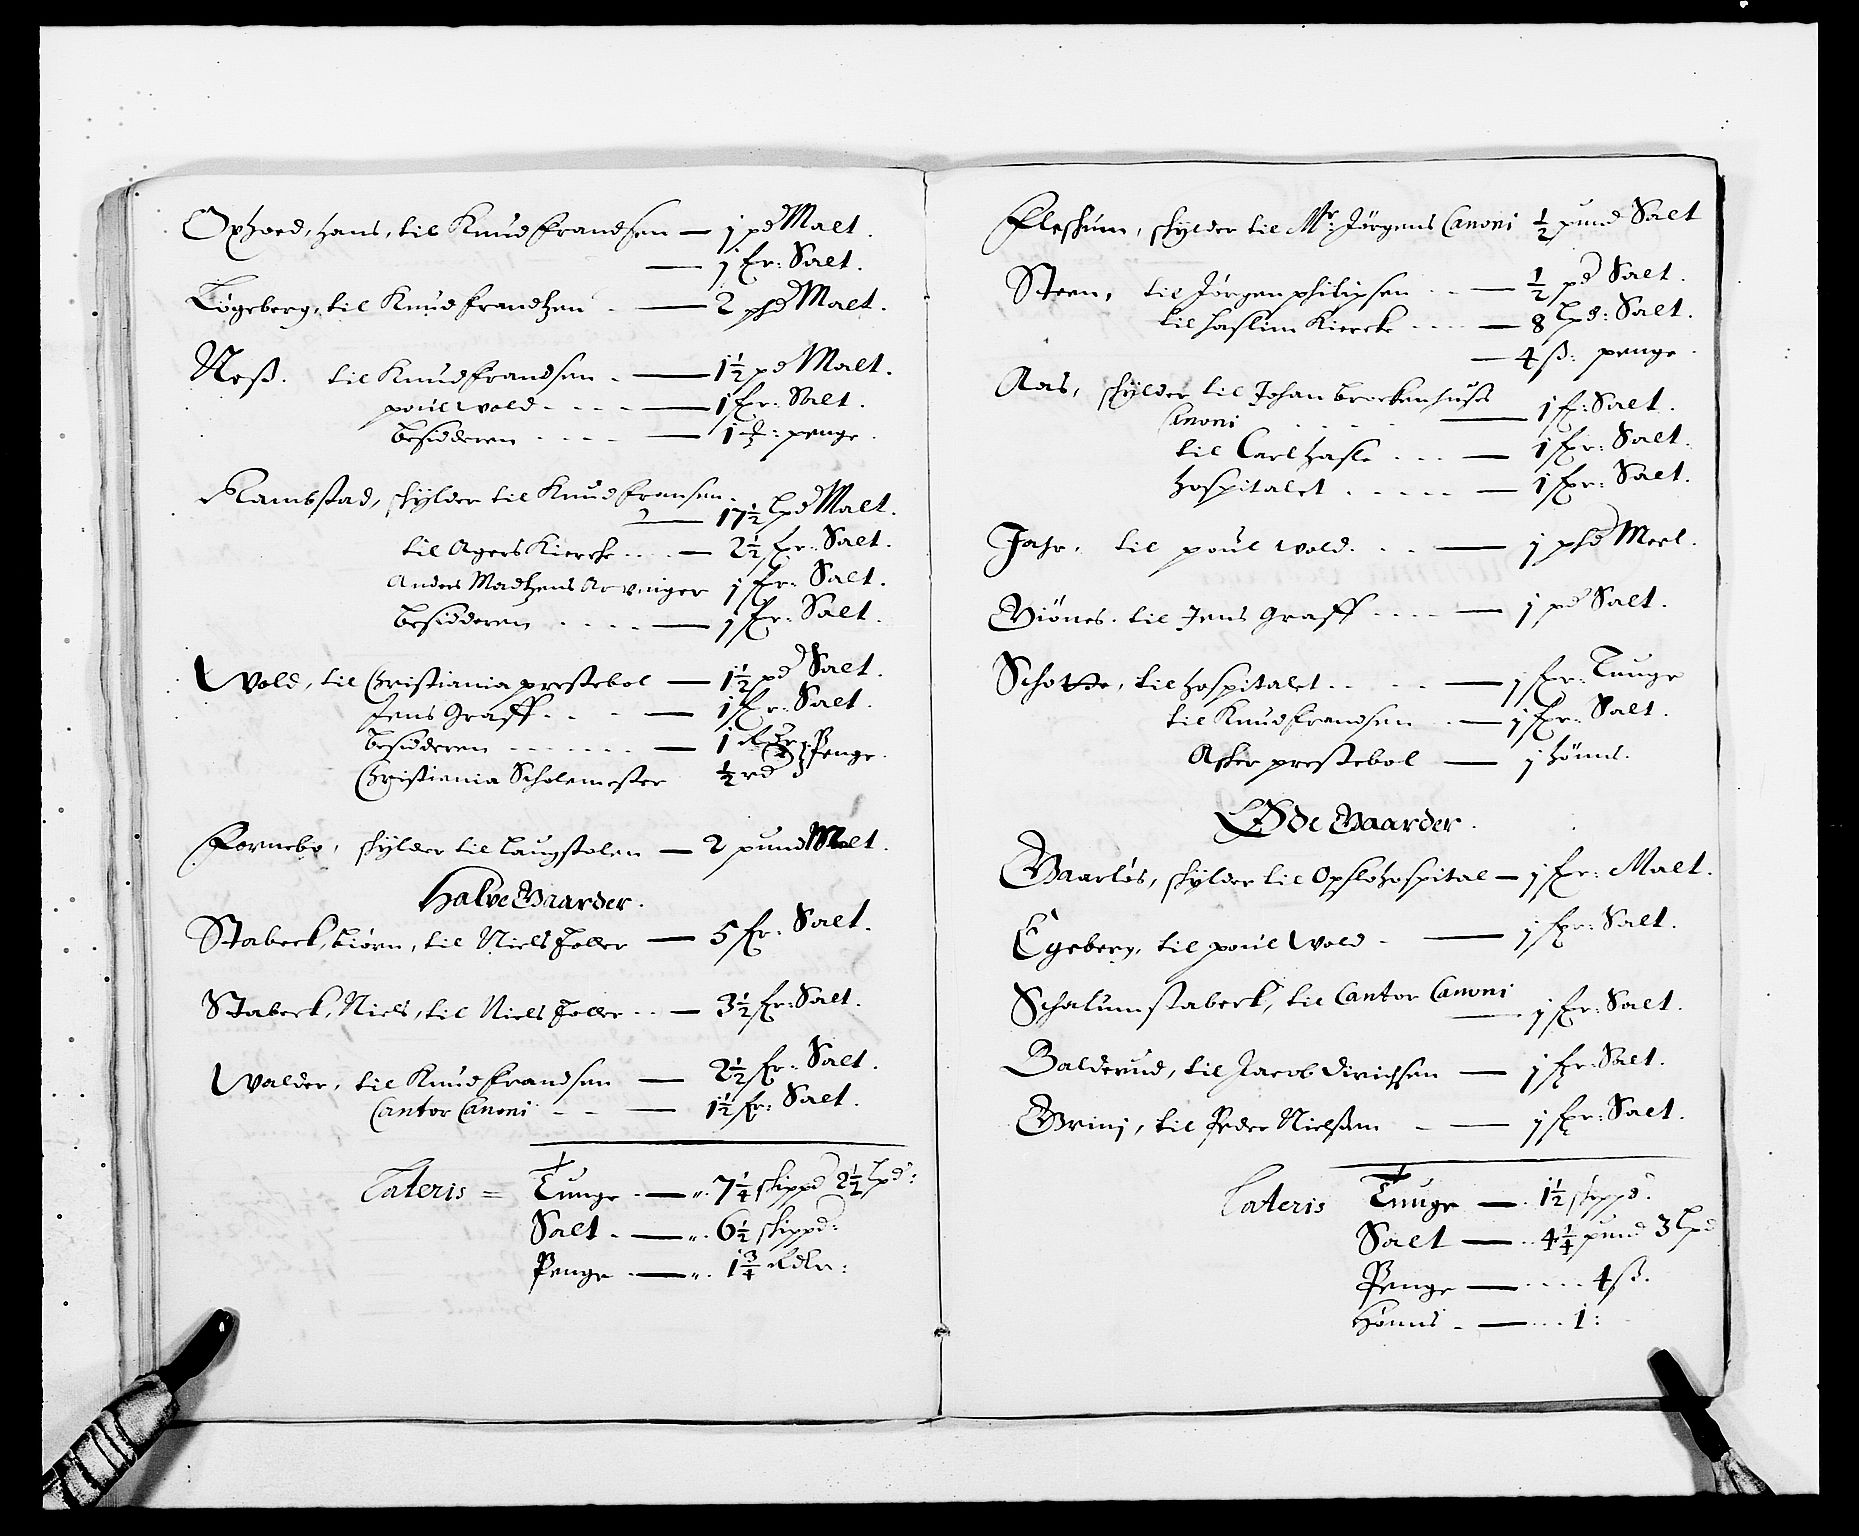 Ophoed, hans, til Knud frandsen — j pd Malt.
— j fr: Salt.
Løgeberg, til Knud frandtzen — 2 phd Malt.
Neß. til Knud frandsen — 1½ pd Malt.
poul Wold — 1 fr: Salt.
besidderen — 1 ʒ: penge.
Rambstad, skylder til Knud fransen
— 17½ lpd Malt.
til Agers Kiercke — 2½ fr: Salt.
Anders Madtzens Arvinger j fr: Salt.
besidderen — j fr: Salt.
Wold, til Christiania prestebol — 1½ pd Salt.
Jens Graff — 1 fr: Salt.
besidderen — 1 Penge.
Christiania Scholemester ½ rd
Fornebo, skylder til Laugstolen — 2 pund Malt.
Halve Gaarder.
Stabeck, biørn, til Niels Toller — 5 fr: Salt.
Stabeck, Niels, til Niels Toller — 3½ fr: Salt.
Walder, til Knud frandsen — 2½ fr: Salt.
Cantor Canoni — 1½ fr: Salt.
Lateris = Tunge — 7¼ skippd 2½ lpd:
Salt — 6½ skippd:
Penge — 1¾ Rdlr:
Fleskum, skylder til Mr: Jørgens Canoni ½ pund Salt
Steen, til Jørgen philipsen — ½ pd Salt.
til haslim Kiercke — 8 lpd: Salt.
— 4 ß: penge.
Aas, skylder til Johan brockenhuses
Canoni — 1 f: Salt.
til Carl hasle — 1 fr: Salt.
hospitalet — 1 fr: Salt.
Jahr, til poul Wold. — j phd Meel.
Giønes. til Jens Graff — j pd Salt.
Schotte, til hospitalet — j fr: Tunge
til Knud frandsen — j fr: Salt.
Asker prestebol — j hønns.
Øde Gaarder.
Gaarløs, skylder til Opslo hospital — j fr: Malt.
Egeberg, til poul Wold — j fr: Salt.
Schalumstabeck, til Cantor Canoni
— j fr: Salt.
Balderud, til Jacob Dirichsen — j fr: Salt.
Grinj, til Peder Nielssen — j fr: Salt.
Lateris Tunge — 1½ skippd.
Salt — 4¼ pund 3 lpd
Penge — 4 ß.
Hønns — 1: